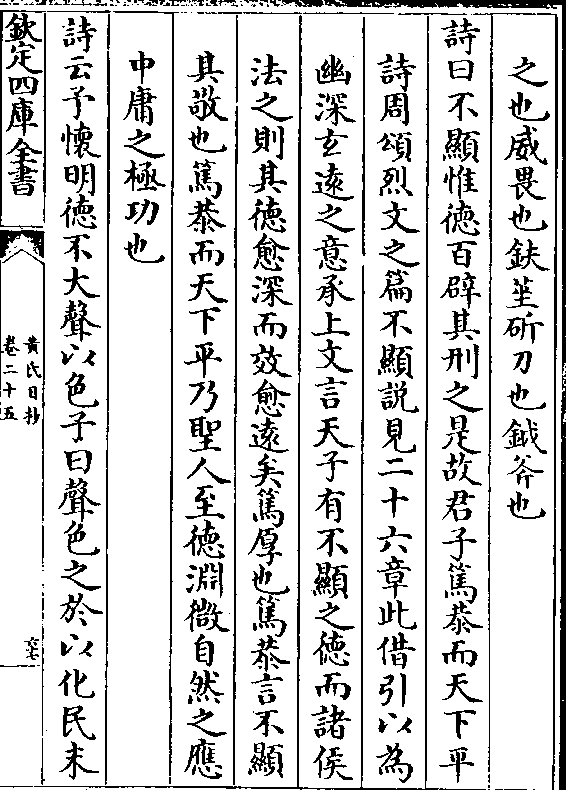 之也威畏也鈇莝斫刀也鉞斧也
詩曰不顯惟徳百辟其刑之是故君子篤恭而天下平
詩周頌烈文之篇不顯説見二十六章此借引以為
幽深玄逺之意承上文言天子有不顯之徳而諸侯
法之則其徳愈深而效愈逺矣篤厚也篤恭言不顯
其敬也篤恭而天下平乃聖人至徳淵微自然之應
中庸之極功也
詩云予懷明徳不大聲以色子曰聲色之於以化民末
欽定四庫全書
黄氏日抄
卷二十五